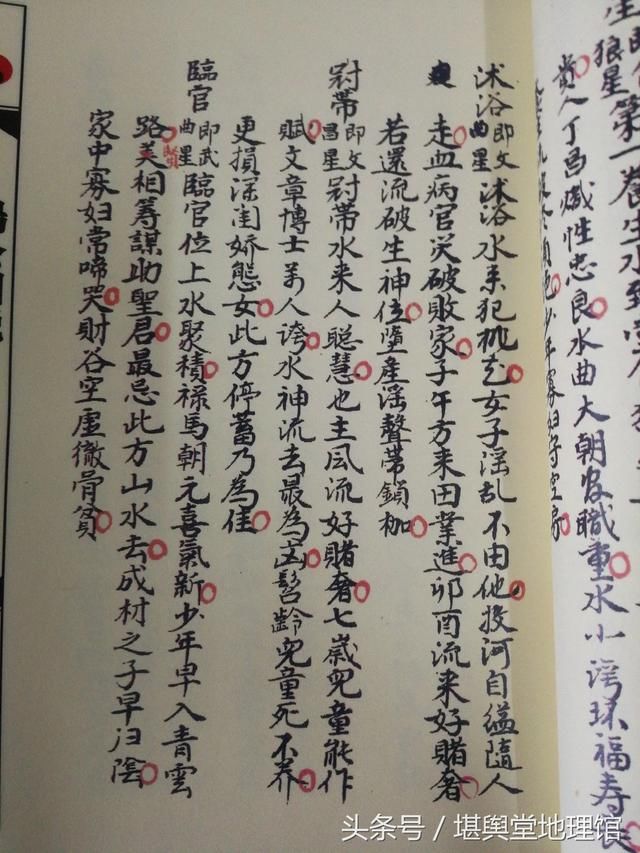 狼星第一養生水到
貴人丁昌熾性忠良水曲大朝官職重水小灣環福壽長
少年寡婦守空房
沐浴即文曲星沐浴水来犯桃花女子淫乱不由他投河自縊隨人
走血病官災破敗家子午方来田業進卯酉流来好賭奢
若還流破生神位墮産淫聲帶鎖枷
冠帶即文昌星冠帶水来人聰慧也主風流好賭奢七歲兒童能作
賦文章博士萬人誇水神流去最為凶髫齡兒童死不养
更損深闺娇態女此方停蓄乃為佳
臨官即武曲星臨官位上水聚積禄馬朝元喜氣新少年早入青雲
路賢美相筹謀助聖君最忌此方山水去成材之子早归陰
家中寡妇常啼哭財谷空虚徹骨貧
头条号／堪舆堂地理馆